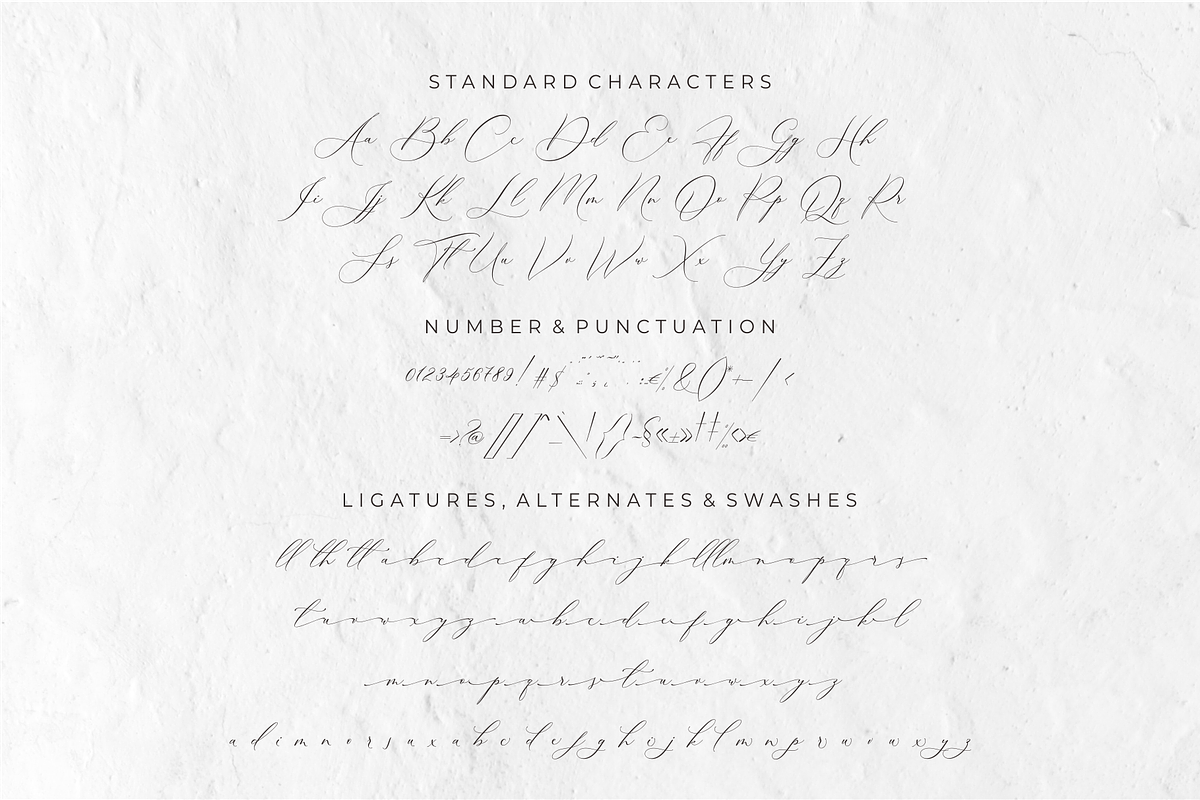 STANDARD CHARACTERS
Aa Bb Cc Dd Ee Ff Gg Hh
Ii Jj Kk Ll Mm Nn Oo Pp Qq Rr
Ss Tt Uu Vv Ww Xx Yy Zz
NUMBER & PUNCTUATION
0123456789! #$ &()*+-/<
=>?@[]^_\|{}~§«±»†‡‰◊€
LIGATURES, ALTERNATES & SWASHES
ll th tt a b c d e f g h i j k l ll m n o p q r s
t u v w x y z a b c d e f g h i j k l
m n o p q r s t u v w x y z
a d i m n o r s u x a b c d e f g h i j k l m n p r v w x y z